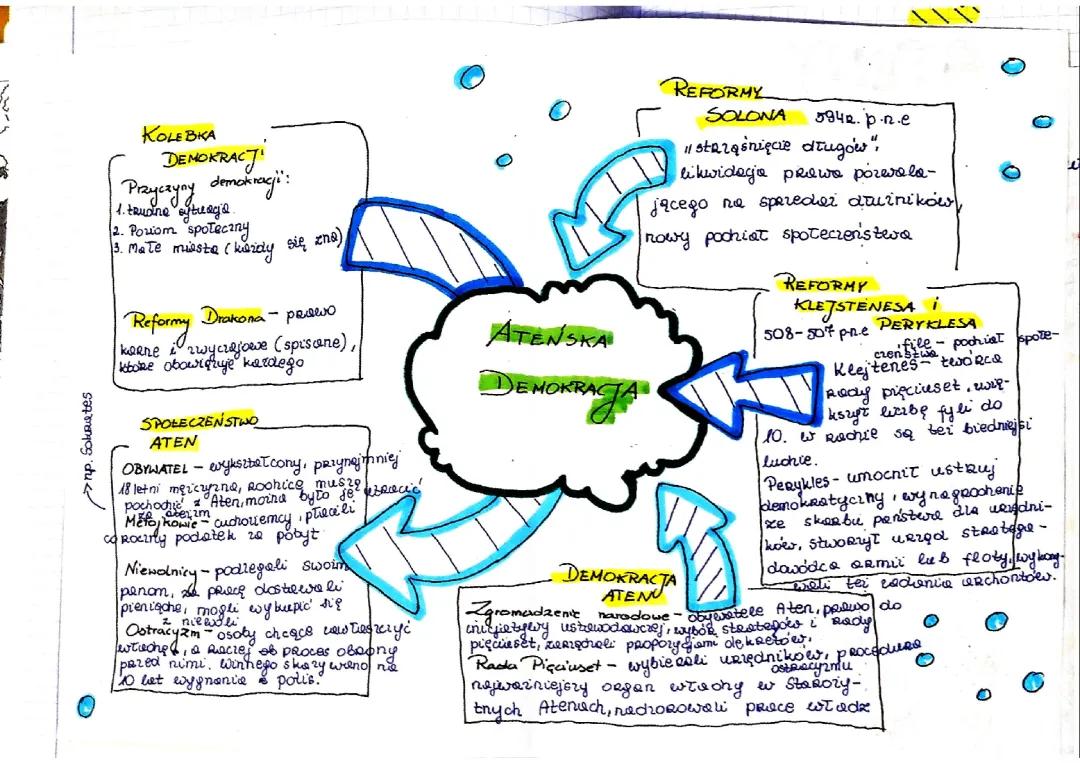 KOLEBKA
DEMOKRACJI
Przyczyny demokracji:
1. trudna sytuacja
2. Poziom społeczny
3. Małe miasta (każdy się zna)
Reformy Drakona - prawo
karne i zwyczajowe (spisane),
które obowiązuje każdego
REFORMY
SOLONA 594r. p.n.e
"strząśnięcie długów",
likwidacja prawa pozwala-
jącego na sprzedaż dłużników,
nowy podział społeczeństwa
ATEŃSKA
DEMOKRACJA
REFORMY
KLEJSTENESA i
PERYKLESA
508-507 p.n.e
file - podział społe-
czeństwa
Klejtenes - twórca
Rady pięciuset, zwię-
kszył liczbę fyli do
10. w radzie są też biedniejsi
ludzie.
Perykles - umocnił ustrój
demokratyczny, wynagrodzenie
ze skarbu państwa dla urzędni-
ków, stworzył urząd stratega -
dowódca armii lub floty, wykony-
wali też zadania archontów.
→ np. Sokrates
SPOŁECZEŃSTWO
ATEN
OBYWATEL - wykształcony, przynajmniej
18 letni mężczyzna, rodzice muszą
pochodzić z Aten, można było je utracić
za ateizm
Metojkowie - cudzoziemcy, płacili
coroczny podatek za pobyt
Niewolnicy - podlegali swoim
panom, za pracę dostawali
pieniądze, mogli wykupić się
z niewoli
Ostracyzm - osoby chcące zawłaszczyć
władzę, a raczej proces obrony
przed nimi. Winnego skazywano na
10 lat wygnania z polis.
DEMOKRACJA
ATEN
Zgromadzenie narodowe - obywatele Aten, prawo do
inicjatywy ustawodawczej, wybór strategów i Rady
pięciuset, zarządzali propozycjami dekretów.
Rada Pięciuset - wybierali urzędników, procedura
ostracyzmu
najważniejszy organ władzy w Staroży-
tnych Atenach, nadzorowali pracę władz